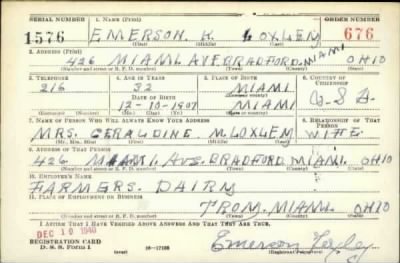 SERIAL NUMBER 1. NAME (Print) ORDER NUMBER
1576 EMERSON. K. LOXLEY 676
(First) (Middle) (Last)
2. ADDRESS (Print)
426 MIAMI AVE BRADFORD. MIAMI OHIO
(Number and street or R. F. D. number) (Town) (County) (State)
3. TELEPHONE 4. AGE IN YEARS 5. PLACE OF BIRTH 6. COUNTRY OF CITIZENSHIP
216 32 MIAMI
DATE OF BIRTH (Town or county)
12-10-1907 MIAMI U.S.A.
(Mo.) (Day) (Yr.) (State or country)
7. NAME OF PERSON WHO WILL ALWAYS KNOW YOUR ADDRESS 8. RELATIONSHIP OF THAT PERSON
MRS. GERALDINE. M. LOXLEY WIFE
(Mr., Mrs., Miss) (First) (Middle) (Last)
9. ADDRESS OF THAT PERSON
426 MIAMI. AVE. BRADFORD. MIAMI. OHIO
(Number and street or R. F. D. number) (Town) (County) (State)
10. EMPLOYER'S NAME
FARMERS. DAIRY
11. PLACE OF EMPLOYMENT OR BUSINESS
TROY. MIAMI. OHIO
(Number and street or R. F. D. number) (Town) (County) (State)
I AFFIRM THAT I HAVE VERIFIED ABOVE ANSWERS AND THAT THEY ARE TRUE.
DEC 10 1940
REGISTRATION CARD
D. S. S. Form 1 (over) 16-17105 Emerson Loxley
(Registrant's signature)